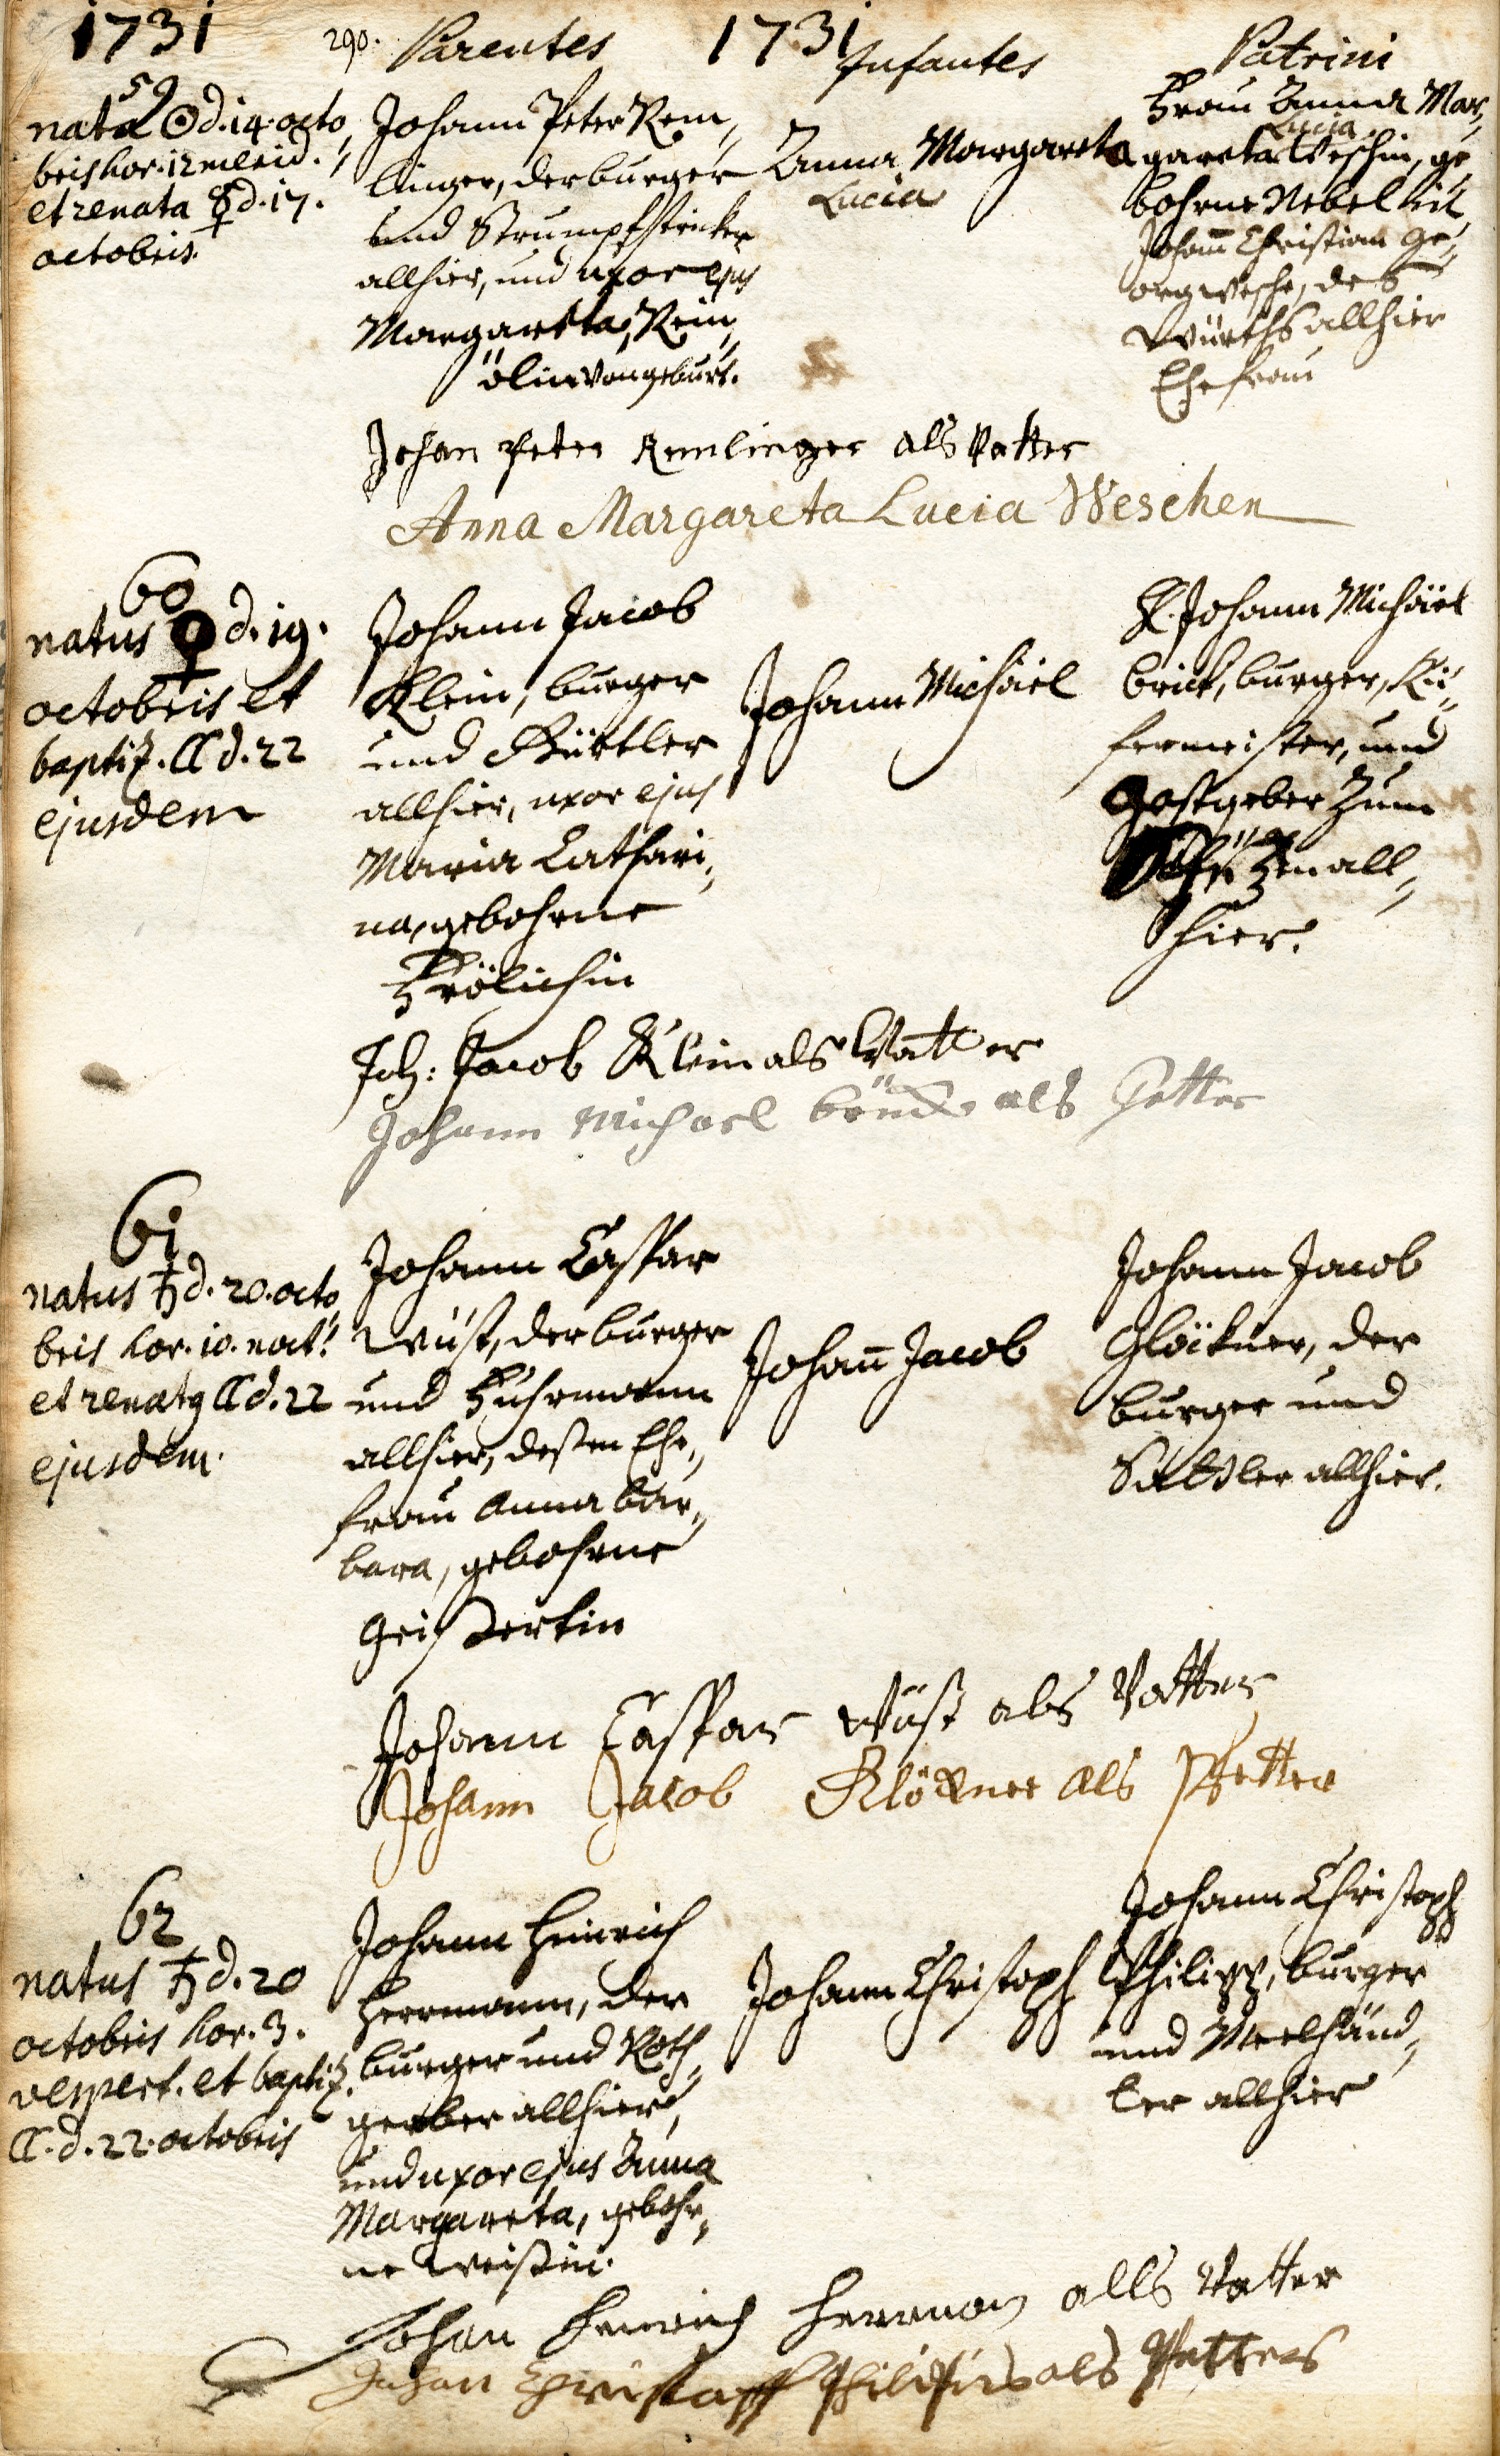 1731 290. Parentes 1731 Infantes Patrini
59
nata ☉ d. 14. octo„
bris hor. 12 merid.
et renata ☿ d. 17.
octobris.
Johann Peter Rem„
linger, der burger
und Strumpfstricker
allhier, und uxor ejus
Margareta, Rein„
ölin von geburt.
Anna Margareta
Lucia
Frau Anna Mar„
Lucia
gareta Weschin, ge
bohrne Nebel
Johann Christian Ge„
org Wesche, des
Würths allhier
Ehefrau
Johan Peter Remlinger als Vatter
Anna Margareta Lucia Weschen
60
natus ♀ d. 19.
octobris et
baptiz. ☾ d. 22
ejusdem
Johann Jacob
Klein, burger
und Gürtler
allhier, uxor ejus
Maria Cathari„
na, gebohrne
Frölichin
Johann Michäel
H. Johann Michäel
brück, burger, Kü„
fermeister, und
Gastgeber zum
all„
hier.
Joh: Jacob Klein als Vatter
Johann Michael brück als Petter
61
natus ♄ d. 20. octo„
bris hor. 10. noct.
et renatq ☾ d. 22
ejusdem.
Johann Caspar
Wüst, der burger
und Fuhrmann
allhier, deßen Ehe„
frau Anna bar„
bara, gebohrne
Geißertin
Johann Jacob
Johann Jacob
Glöckner, der
burger und
Sattler allhier.
Johann Caspar Wüst als Vatter
Johann Jacob Klöckner als Petter
62
natus ♄ d. 20
octobris hor. 3.
vespert. et baptiz.
☾. d. 22. octobris
Johann Heinrich
Herrmann, der
burger und Roth„
gerber allhier,
und uxor ejus Anna
Margareta, gebohr„
ne Weißin.
Johann Christoph
Johann Christoph
Philipp, burger
und Meelhänd„
ler allhier
Johan Henrich Herrman alls Vatter
Johan Christoff als Petter